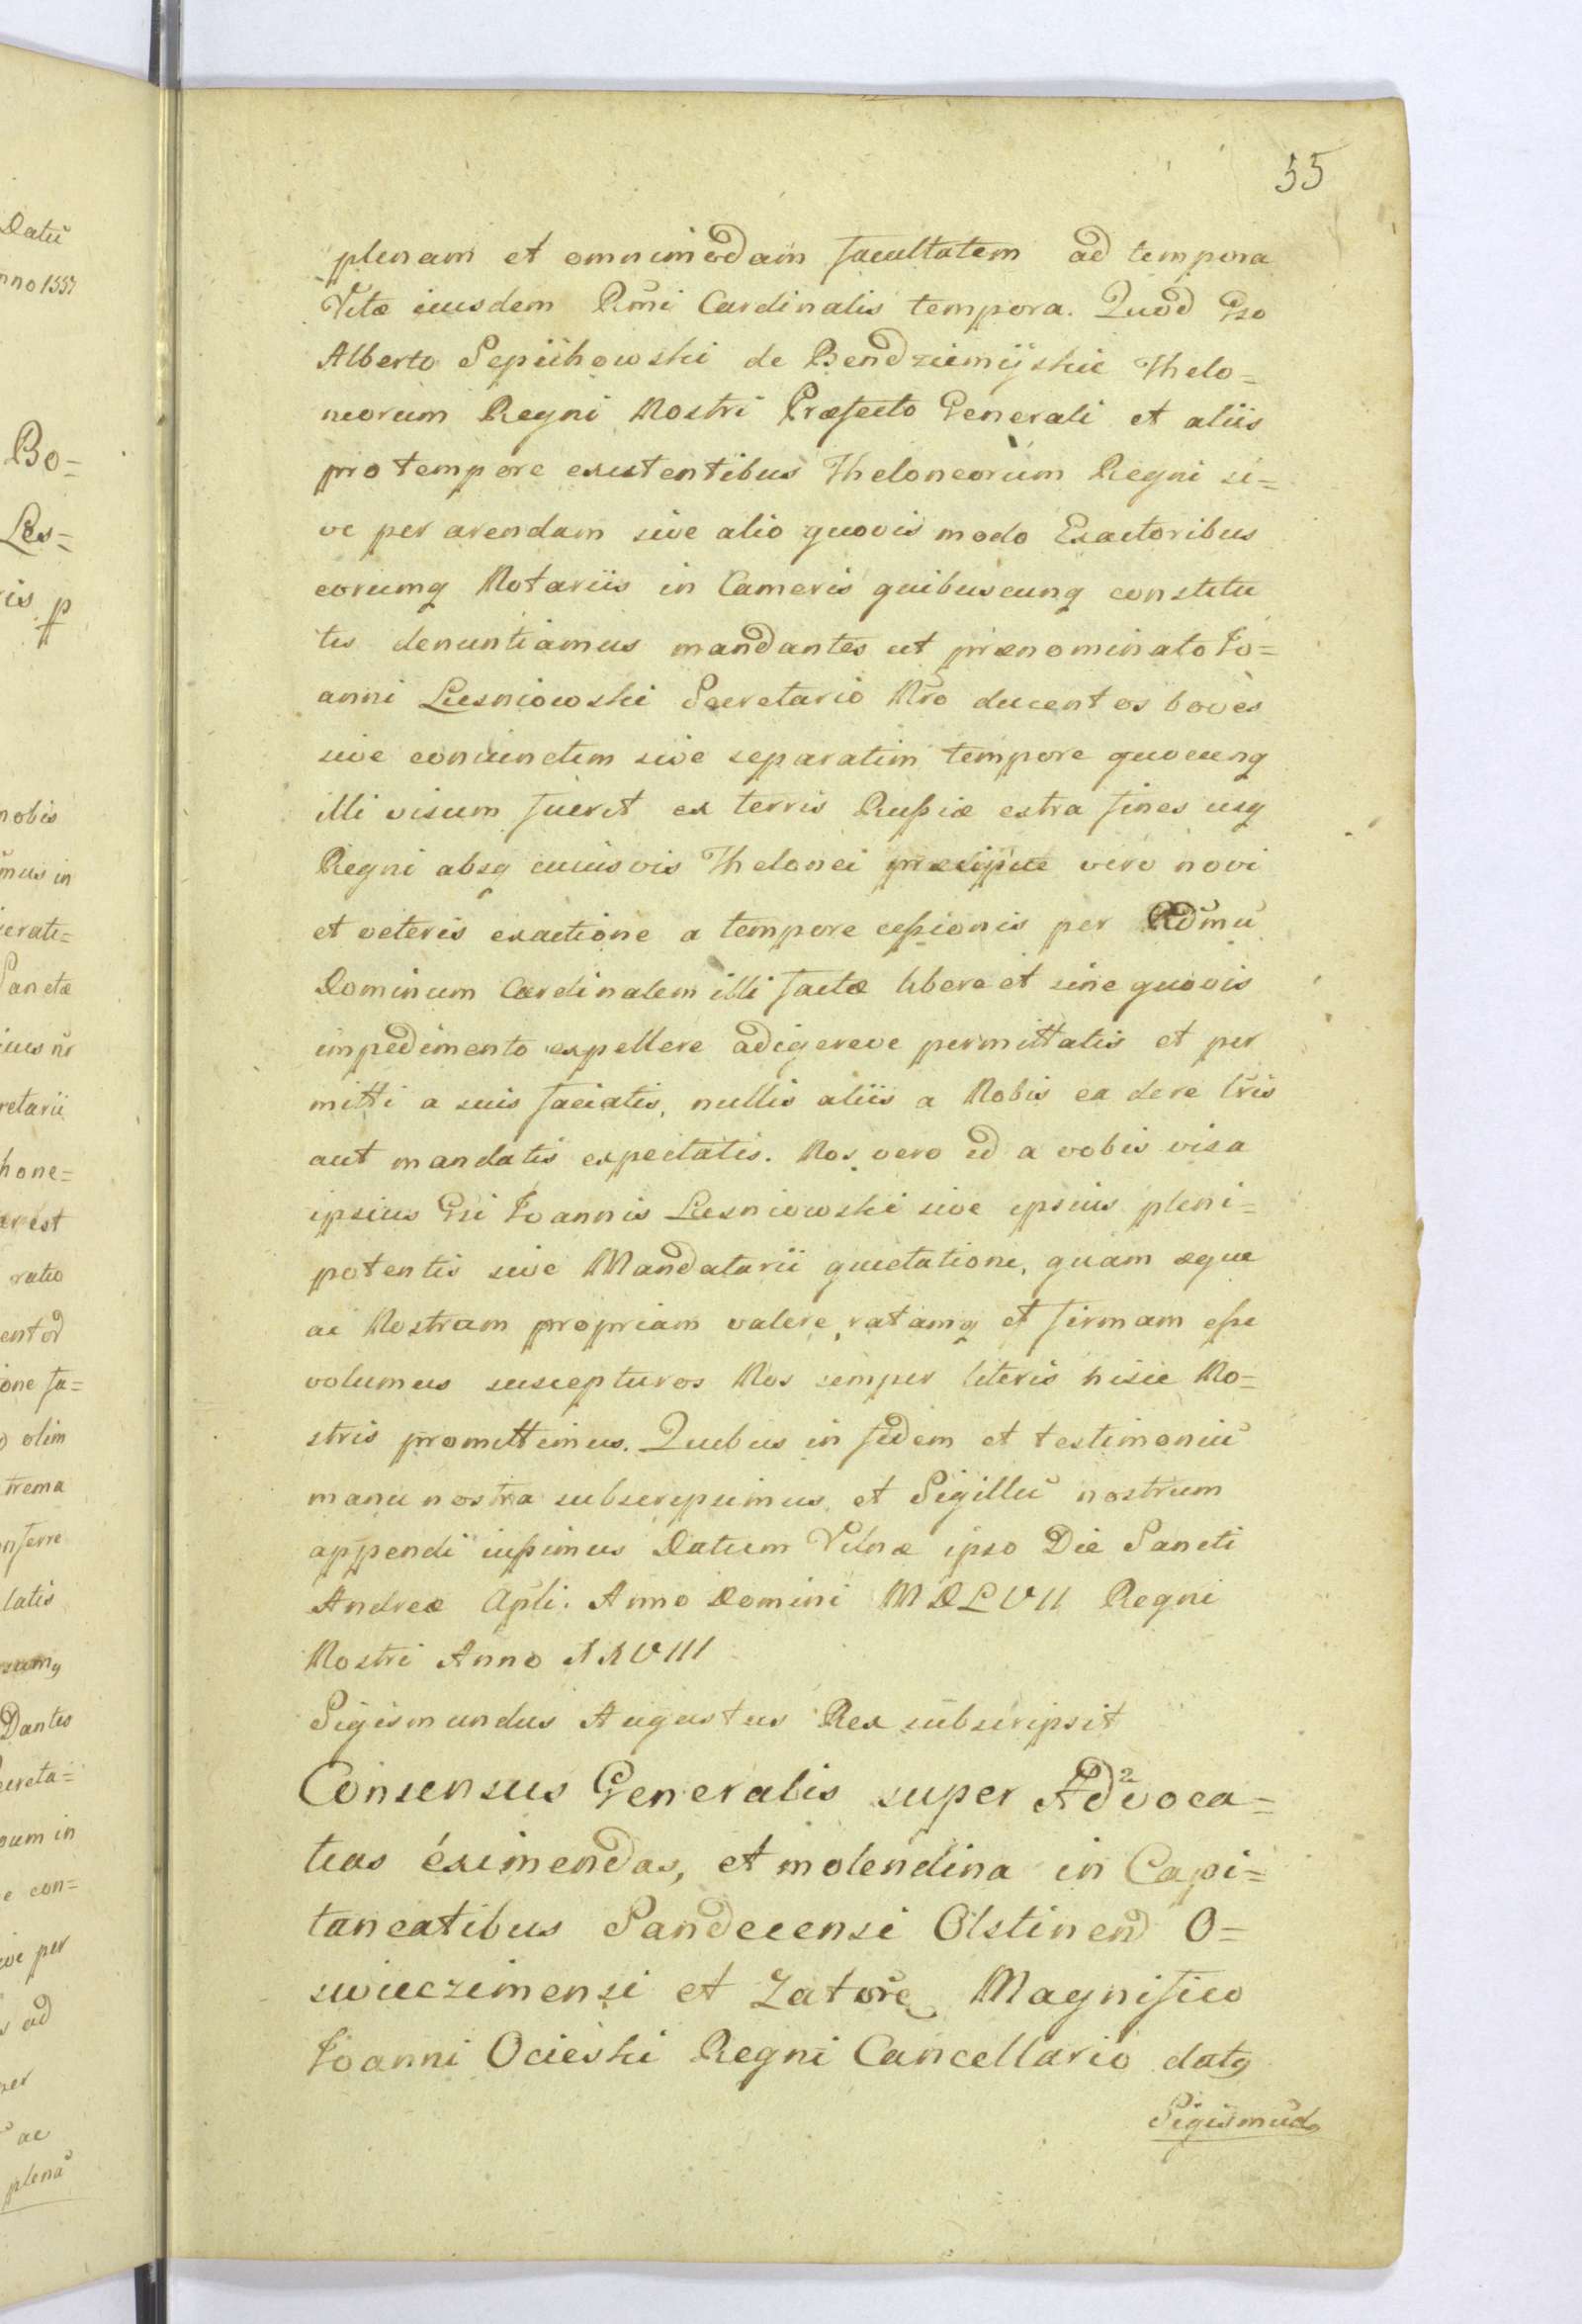 55
plenam et omnimodam facultatem ad tempora
Vitæ eiusdem Rmi Cardinalis tempora. Quod Gso
Alberto Sepiihowski de Bendziemijskie Thelo=
neorum Regni Nostri Præfecto Generali et aliis
pro tempore existentibus Theloneorum Regni si=
ve per arendam sive alio quovis modo Exactoribus
eorumq Notariis in Cameris quibuscunq constitu
tis denuntiamus mandantes ut prænominato Io=
anni Lesniowski Secretario Nro ducentos boves
sive coniunctim sive separatim tempore quocunq
illi visum fuerit ex terris Rußiæ extra fines usq
Regni absq cuiusvis Thelonei præcipue vero novi
et veteris exactione a tempore ceßionis per Rdmu
Dominum Cardinalem illi factæ libere et sine quovis
impedimento expellere adigereve permittatis et per
mitti a suis faciatis, nullis aliis a Nobis ea de re lris
aut mandatis expectatis. Nos vero id a vobis visa
ipsius Gsi Ioannis Lesniowski sive ipsius pleni=
potentis sive Mandatarii quietatione, quam æque
ac Nostram propriam valere ratamq et firmam eße
volumus suscepturos Nos semper literis hisce No=
stris promittimus. Quibus in fidem et testimoniu
manu nostra subscripsimus et Sigillu nostrum
appendi iußimus Datum Vilnæ ipso Die Sancti
Andreæ Apli. Anno Domini MDLVII Regni
Nostri Anno XXVIII
Sigismundus Augustus Rex subscripsit
Consensus Generalis super Advoca=
tias éximendas, et molendina in Capi=
taneatibus Sandecensi Olstinen O=
swieczimensi et Zatore Magnifico
Ioanni Ocieski Regni Cancellario datq
Sigismudq
Datu
nno 1557
Bo=
Les=
ris p
nobis
mus in
Sanctæ
retarii
hone=
ratio
one fa=
olim
trema
nferre
latis
Dantes
creta=
e con=
ive per
ad
ac
plenã